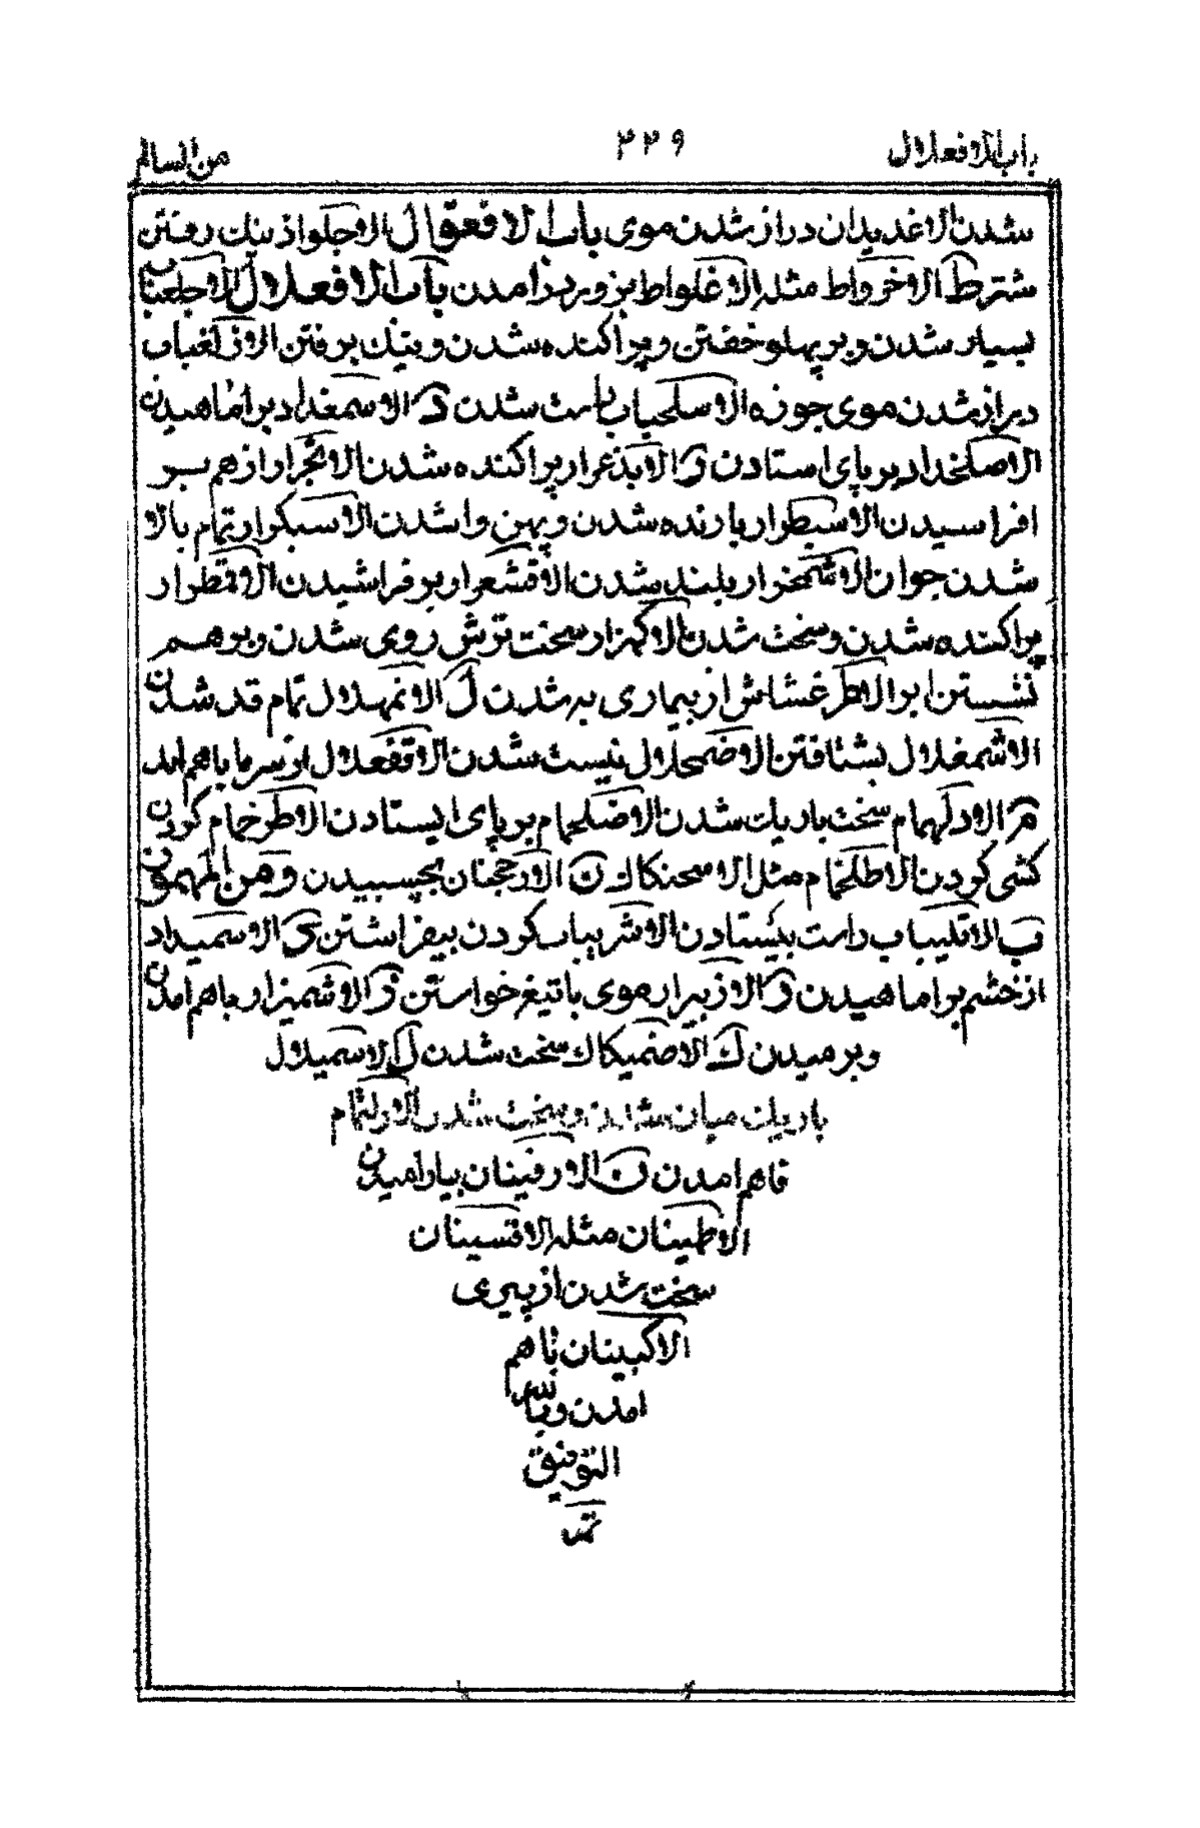 باب الافعلال ٢٢٩ من السالم
شدن الاغديدان دراز شدن موى باب الافعوال الاجلواذ نيك رفتن
شترط الاخرواط مثله الاغلواط بزور بر امدن باب الافعلال الاجلعباب
بسيار شدن و بر پهلو خفتن و پراكنده شدن و نيك برفتن الازلغباب
دراز شدن موى جوزه الاسلحباب راست شدن د الاسمغداد بر اماهيدن
الاصلخداد بر پاى استادن ر الابذعرار پراكنده شدن الاثجرار از هم بر
افراسيدن الاسبطرار يازنده شدن و پهن وا شدن الاسبكرار تمام بالا
شدن جوان الاشمخرار بلند شدن الاقشعرار بر فراشيدن الاقمطرار
پراكنده شدن و سخت شدن الاكهرار سخت ترش روى شدن و بر هم
نشستن ابر الاطرغشاش از بيمارى به شدن ل الاتمهلال تمام قد شدن
الاشمعلال بشتافتن الاضمحلال نيست شدن الاقفعلال از سرما باهم امد
م الادلهمام سخت باريك شدن الاضلخمام بر پاى ايستادن الاطرخمام كردن
كشى كردن الاطلخمام مثل الاسحنكاك ن الارجحنان بچسبيدن و من المهموز
ب الاتليباب راست بيستادن الاشريباب كردن بيفراشتن د الاسميداد
از خشم بر اماهيدن ر الازبيرار موى با تيغ خواستن ز الاشميزاز باهم امدن
و بر ميدن ك الاضميكاك سخت شدن ل الاسميلال
باريك ميان شدن و سخت شدن الاوليتام
فاهم امدن ن الارفينان بيارامیدن
الاطمينان مثله الاقسينان
سخت شدن از پيرى
الاكبينان باهم
امدن و بالله
التوفيق
تمت